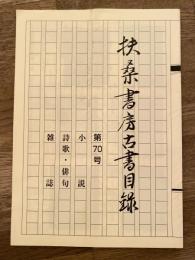 扶桑書房古書目録
第70号
小説
詩歌・俳句
雑誌